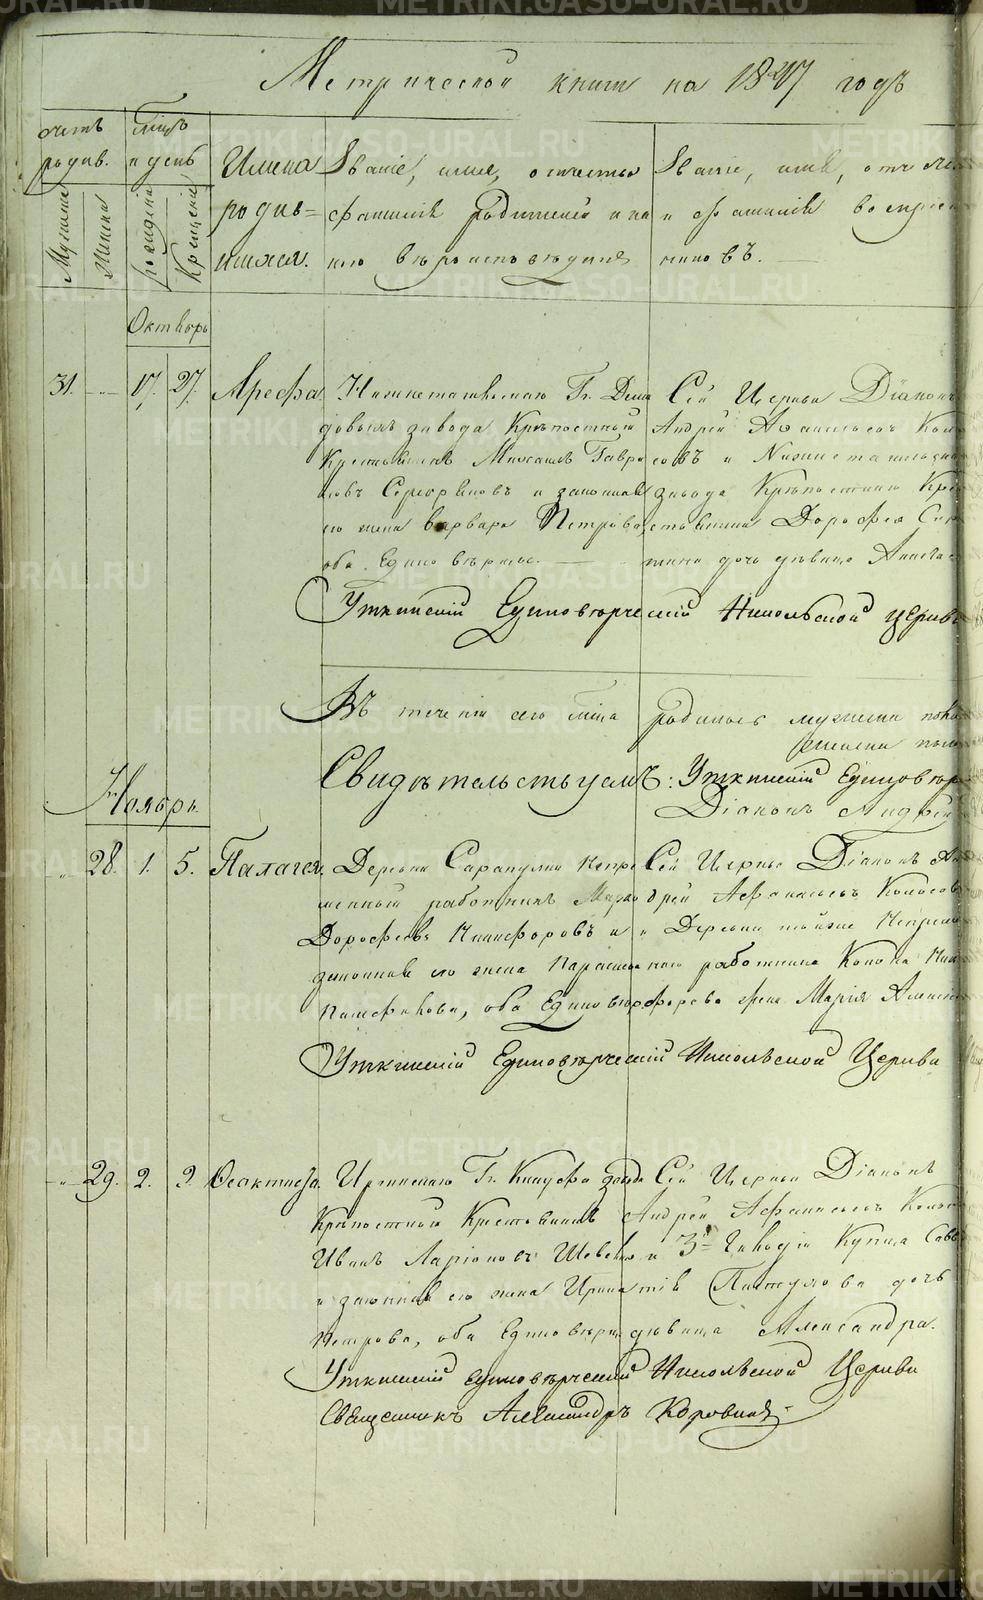 Метрической книги на 1847 годъ
счетъ родив.
Мужеска
Женска
мцъ и день
рожденiя
Крещенiя
Имена родив=шихся.
Званiе, имя, отчество
фамилiя родителей и ка
кого вѣроисповѣданiя
Званiе, имя, отче
и фамилiя воспрiем
никовъ.
Октябрь
31. 17. 27. Арефа
Нижнетагильскаго Гг. Деми
довыхъ завода Крѣпостный
Крестьянинъ Михаилъ Гаври
ловъ и законная
его жена Варвара Петрова,
оба Единовѣрцы.
Сей Церкви Дiаконъ
Андрей Афанасьевъ Коло
совъ и Нижнетагильскаго
завода Крѣпостнаго Кре
стьянина Дорофея
дочь дѣвица Анастас
Уткинскiй Единовѣрческiй Никольской Церкви
Въ теченiи сего мца родилось мужеска пола
женска пола
Свидѣтельствуемъ: Уткинскiй Единовѣр
Дiаконъ Андрей
Ноябрь
28. 1. 5. Палагея
Деревни Сарапулки Непре
менный работникъ Марко
Дорофеевъ Никифоровъ и
законная его жена Парасковья
Памфилова, оба Единовѣр.
Сей Церкви Дiаконъ Ан
дрей Афанасьевъ Колосов
и Деревни той же Непреме
ннаго работника Конона Ники
форова жена Марiя Алексѣев
Уткинскiй Единовѣрческiй Никольской Церкви
29. 2. 9. Феоктиста
Иргинскаго Гг. Кнауфа завода
Крѣпостной Крестьянинъ
Иванъ Ларiоновъ
и законная его жена Ирина
Петрова, оба Единовѣрц.
Сей Церкви Дiаконъ
Андрей Афанасьевъ Колос
и 3й Гильдiи Купца Савв
дочь
дѣвица Александра.
Уткинскiй Единовѣрческiй Никольской Церкви
Священникъ Александръ Коровинъ
METRIKI.GASO-URAL.RU